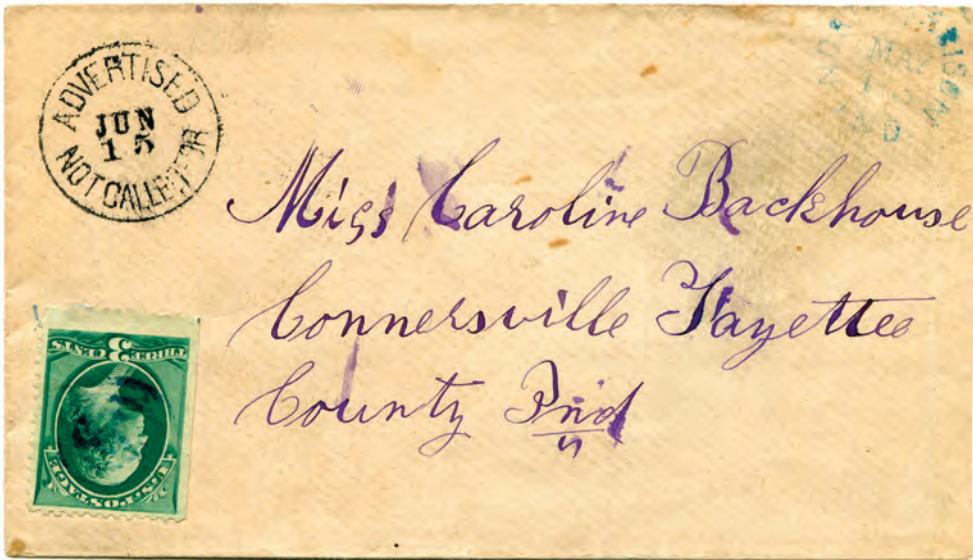 ADVERTISED
JUN
15
NOT CALLED FOR
MAY
IND.
Miss Caroline Backhouse
Connersville Fayette
County Ind
THREE 3 CENTS
U.S. POSTAGE